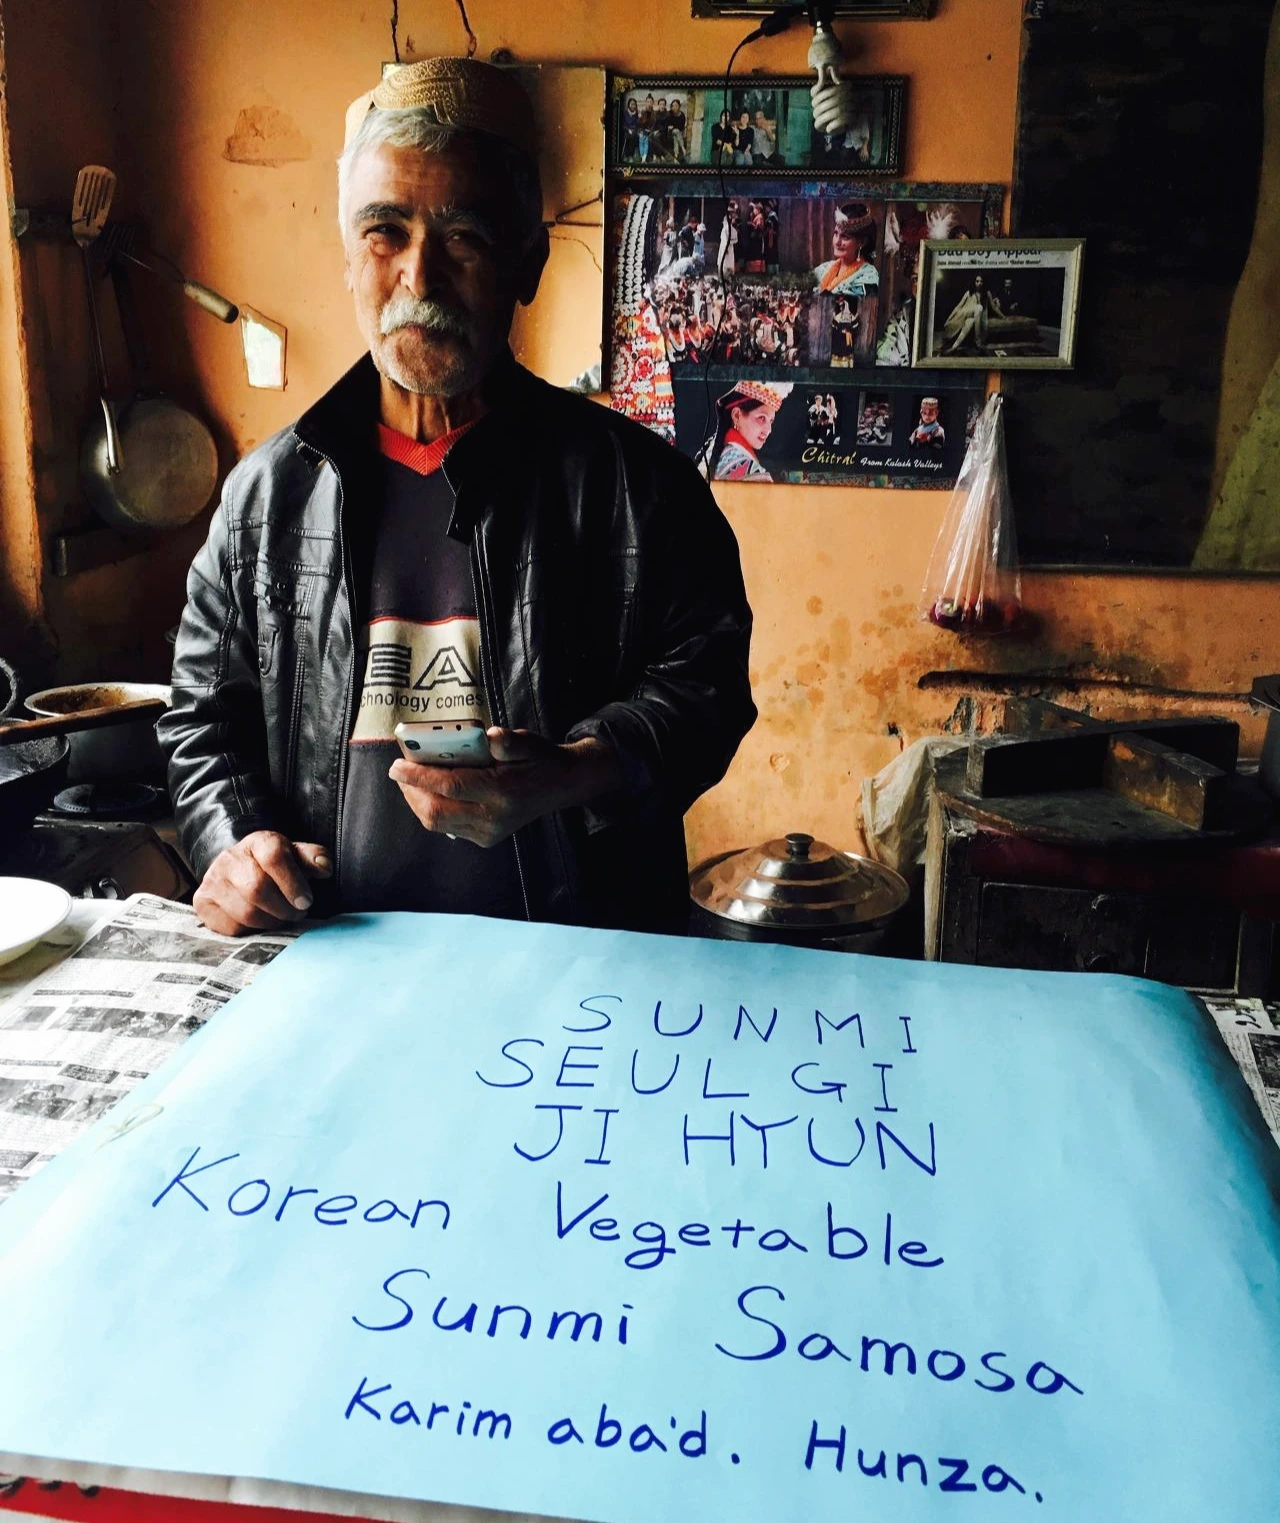 Bad Boy Appeal
Chitral From Kalash Valleys
EA
chnology comes
SUNMI
SEULGI
JI HYUN
Korean Vegetable
Sunmi Samosa
Karim aba'd. Hunza.